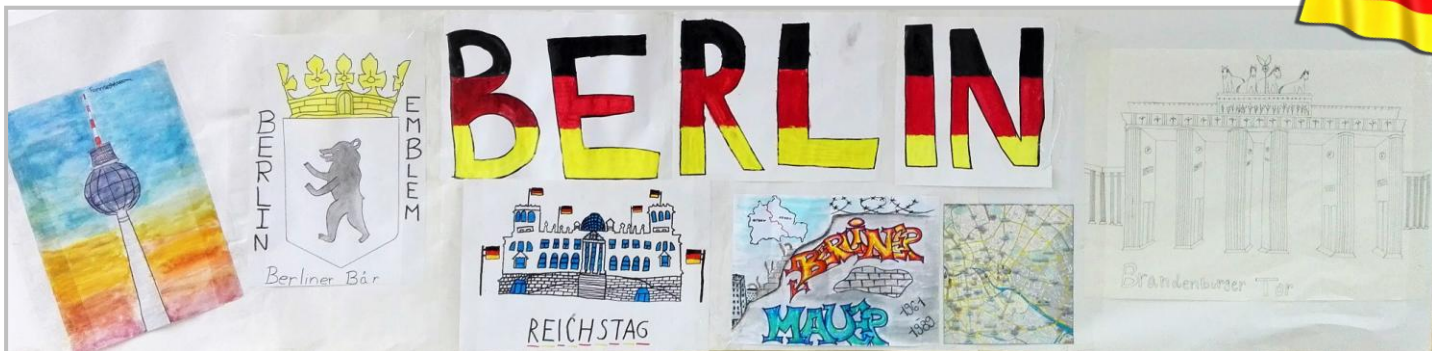 Fernsehturm
BERLIN
EMBLEM
Berliner Bär
BERLIN
REICHSTAG
BERLINER
MAUER
1961
1989
Brandenburger Tor